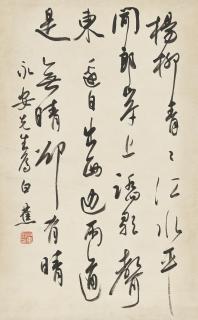 楊柳青〻江水平
聞郎岸上踏歌聲
東邊日出西邊雨道
是無晴卻有晴
永安先生 白蕉